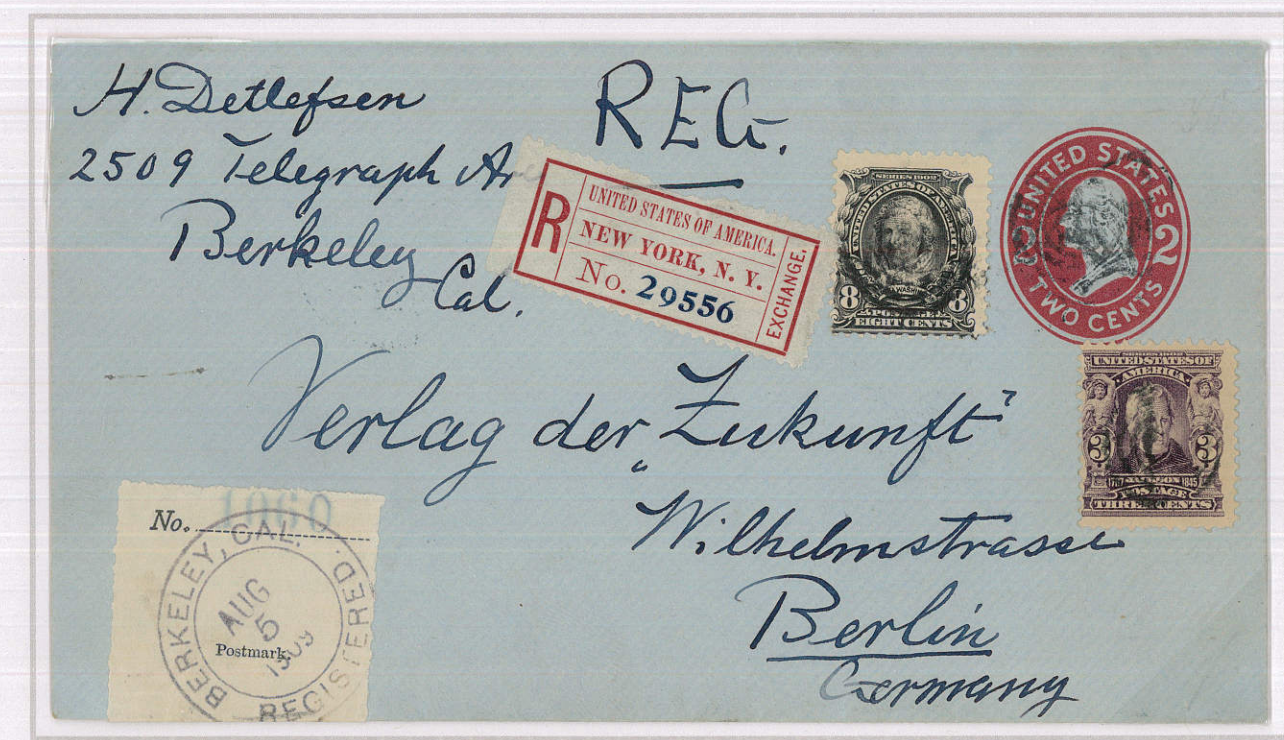 H. Detlefsen
2509 Telegraph Ave
Berkeley
Cal.
REG.
R
UNITED STATES OF AMERICA.
NEW YORK, N. Y.
No. 29556
EXCHANGE.
SERIES 1902
UNITED STATES OF AMERICA
8 8
POSTAGE
EIGHT CENTS
UNITED STATES
2 2
TWO CENTS
UNITED STATES OF
AMERICA
3 3
1767 JACKSON 1845
POSTAGE
THREE CENTS
Verlag der „Zukunft"
Wilhelmstrasse
Berlin
Germany
No. 1060
BERKELEY, CAL.
AUG
5
1909
Postmark.
REGISTERED.